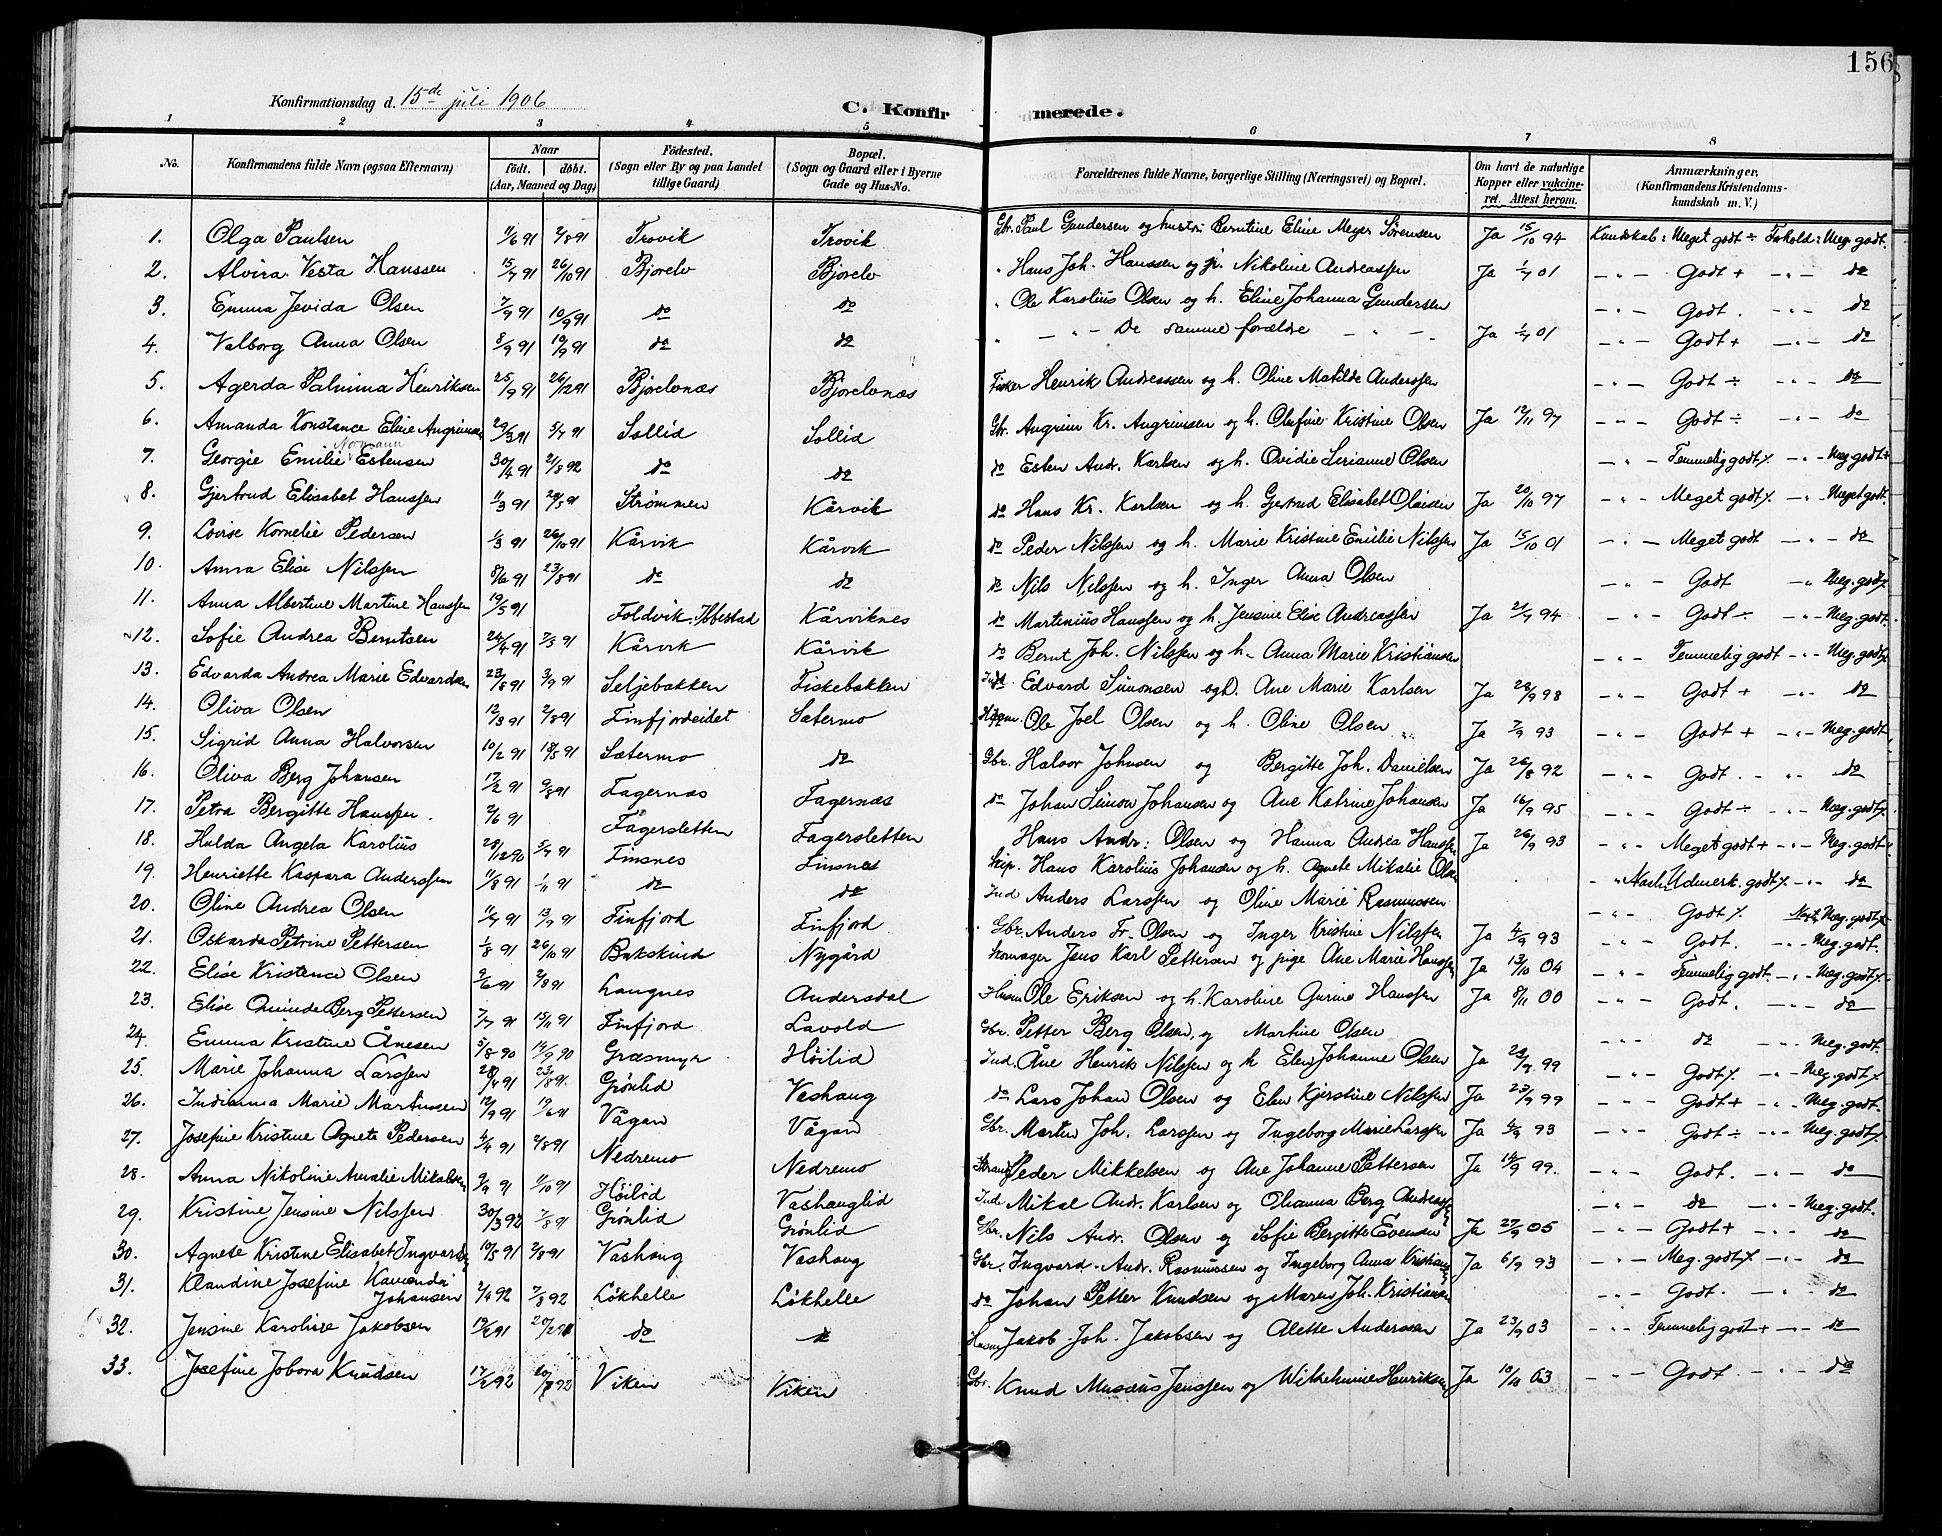 156
Konfirmationsdag d. 15de juli 1906
C. Konfirmerede.
1 2 3 4 5 6 7 8
No. Konfirmandens fulde Navn (ogsaa Efternavn) Naar födt. döbt. (Aar, Maaned og Dag) Födested. (Sogn eller By og paa Landet tillige Gaard) Bopæl. (Sogn og Gaard eller i Byerne Gade og Hus-No. Forældrenes fulde Navne, borgerlige Stilling (Næringsvei) og Bopæl. Om havt de naturlige Kopper eller vakcineret. Attest herom. Anmærkninger. (Konfirmandens Kristendomskundskab m. V.)
1. Olga Paulsen 11/6 91 2/8 91 Trovik Trovik Gbr. Paul Gundersen og hustru Berntine Eline Meyer Sörensen Ja 15/10 94 Kundskab: Meget godt ÷ Forhold: Meg. godt.
2. Alvira Vesta Hanssen 15/7 91 26/10 91 Bjorelv Bjorelv " Hans Joh. Hanssen og Nikoline Andreassen Ja 1/7 01 - " - Godt + - " - do
3. Emma Jevida Olsen 7/9 91 10/9 91 do do " Ole Karolius Olsen og h. Eline Johanna Gundersen - " - Godt. - " - do
4. Valborg Anna Olsen 8/9 91 19/9 91 do do " - " - De samme forældre - " - Ja 1/7 01 - " - Godt + - " - do
5. Agerda Palmina Henriksen 25/9 91 26/12 91 Bjorelvnæs Bjorelvnæs Fisker Henrik Andreassen og h. Oline Matilde Anderssen - " - Godt ÷ - " - do
6. Amanda Konstance Eline Angrimsen 29/3 91 5/7 91 Sollid Sollid Gbr. Angrim Kr. Angrimsen og h. Olefine Kristine Olsen Ja 12/11 97 - " - Godt ÷ - " - do
7. Georgie Emilie Normann Estensen 30/4 91 21/8 92 do do do Esten Andr. Karlsen og h. Ovidie Olsen - " - Temmelig godt % - " - Meg godt +
8. Gjertrud Elisabet Hanssen 11/3 91 20/5 91 Strømmen Kårvik do Hans Kr. Karlsen og h. Gjertrud Elisabet Olaisen Ja 20/10 97 - " - Meget godt % - " - Meget godt.
9. Lovise Kornelie Pedersen 1/3 91 26/10 91 Kårvik Kårvik do Peder Nilssen og h. Marie Kristine Emilie Nilssen Ja 15/10 01 - " - Meget godt - " - do
10. Anna Elise Nilssen 8/6 91 23/8 91 do do do Nils Nilssen og h. Inger Anna Olsen - " - Godt - " Meg. godt %
11. Anna Albertine Martine Hanssen 19/5 91 Foldvik, Ibbestad Kårviknes do Martinius Hanssen og h. Jensine Elise Andreassen Ja 21/7 94 - " - Godt ÷ - " - Meg. godt.
12. Sofie Andrea Berntsen 24/4 91 Kårvik Kårvik do Bernt Joh. Nilssen og h. Anna Marie Kristiansen - " - Temmelig godt - " - Meg. godt %
13. Edvarda Andrea Marie Edvardsen 23/8 91 3/9 91 Seljebakken Fiskebakken Ind. Edvard Simonsen og Ane Marie Karlsen Ja 20/9 98 - " - Godt + - " - do
14. Oliva Olsen 12/3 91 2/8 91 Finfjordeidet Sætermo Husm. Ole Joel Olsen og h. Oline Olsen Ja 7/9 93 - " - Godt + - " - Meg. godt.
15. Sigrid Anna Halvorsen 10/2 91 18/5 91 Sætermo do Gbr. Halvor Johnsen og Bergitte Joh. Danielsen Ja 26/8 92 - " - Godt. - " - do
16. Oliva Berg Johansen 17/2 91 9/8 91 Fagernæs Fagernæs do Johan Simon Johansen og Ane Katrine Johansen Ja 16/9 95 - " - Godt ÷ - " - Meg. godt %
17. Petra Bergitte Hanssen. 2/6 91 Fagersletten Fagersletten Hans Andr. Olsen og Hanna Andrea Hanssen Ja 26/9 93 - " - Meget godt + - " - Meg. godt
18. Hulda Angela Karolius 28/12 90 5/7 91 Finsnes Finsnes Skip. Hans Karolius Johansen og h. Agnete Mikalie Olsen
19. Henriette Kaspara Anderssen 11/8 91 1/11 91 do do Ind Anders Larssen og Oline Marie Rasmussen - " Udmerk. godt % - " - do
20. Oline Andrea Olsen 11/7 91 13/9 91 Finfjord Finfjord Gbr. Anders Fr. Olsen og Inger Kristine Nilssen Ja 4/9 93 - " - Godt % Meg. godt %
21. Oskarda Petrine Pettersen 1/8 91 26/10 91 Bukskind Nygård Skomager Jens Karl Pettersen og pige Ane Marie Hanssen Ja 13/10 04 - " - Godt. - " - Meg. godt.
22. Elise Kristence Olsen 9/6 91 2/8 91 Langnes Andersdal Husm Ole Eriksen og h. Karoline Gurine Hanssen Ja 8/11 00 - " - Temmelig godt. - " - Meg. godt %
23. Elise Berg Pettersen 7/7 91 15/11 91 Finfjord Lavold Gbr. Petter Berg Olsen, og Martine Olsen - " - Godt. - " - do
24. Emma Kristine Ånesen 5/8 90 14/9 90 Græsmyr Høilid Ind. Åne Henrik Nilssen og h Elen Johanne Olsen Ja 23/9 99 - " - do - " - Meg. godt.
25. Marie Johanna Larssen 28/4 91 23/8 91. Grønlid Vashaug do Lars Johan Olsen og Elen Kjerstine Nilssen Ja 23/9 99 - " - Godt % - " - Meg. godt %
26. Indianna Marie Martinsen 12/9 91 19/6 91 Vågan Vågan Gbr. Martin Joh. Larssen og Ingeborg Marie Larssen Ja 4/9 93 - " - Godt + - " - Meg. godt.
27. Josefine Kristine Agnete Pedersen 4/4 91 2/8 91 Nedremo Nedremo Peder Mikkelsen og Ane Johanne Pettersen Ja 14/9 99. - " - Godt ÷ - " - Meg. godt %
28. Anna Nikoline Amalie Mikalsen 9/9 91 11/10 91 Høilid Vashauglid Ind Mikal Andr. Karlsen og Olianna Berg Andreassen - " - Godt. - " - do
29. Kristine Jensine Nilssen 30/3 92 7/8 91 Grønlid Grønlid Gbr. Nils Andr. Olsen og Sofie Bergitte Evensen Ja 27/9 05 - " - do - " - Meg. godt.
30. Agnete Kristine Elisabet Ingvardsen 19/5 91 2/8 91 Vashaug Vashaug Gbr. Ingvard Andr. Rasmussen og Ingeborg Anna Kristiansen Ja 6/9 93 - " - Godt + - " - do
31. Klandine Josefine Kamenda Johansen 2/4 92 7/8 92 Løkhelle Løkhelle do Johan Petter Knudsen og Maren Joh. Kristiansen - " - Meg. godt % - " - do
32. Jensine Karoline Jakobsen do do Husm Jakob Joh. Jakobsen og Alette Anderssen Ja 23/9 03 - " - Godt. - " - do
- " - Temmelig godt + - " - do
33. Josefine Jobora Knudsen 17/2 92 Viken Viken Gbr. Knud Musæus Jenssen og Wilhelmine Henriksen Ja 10/10 03 - " - Godt. - " - do